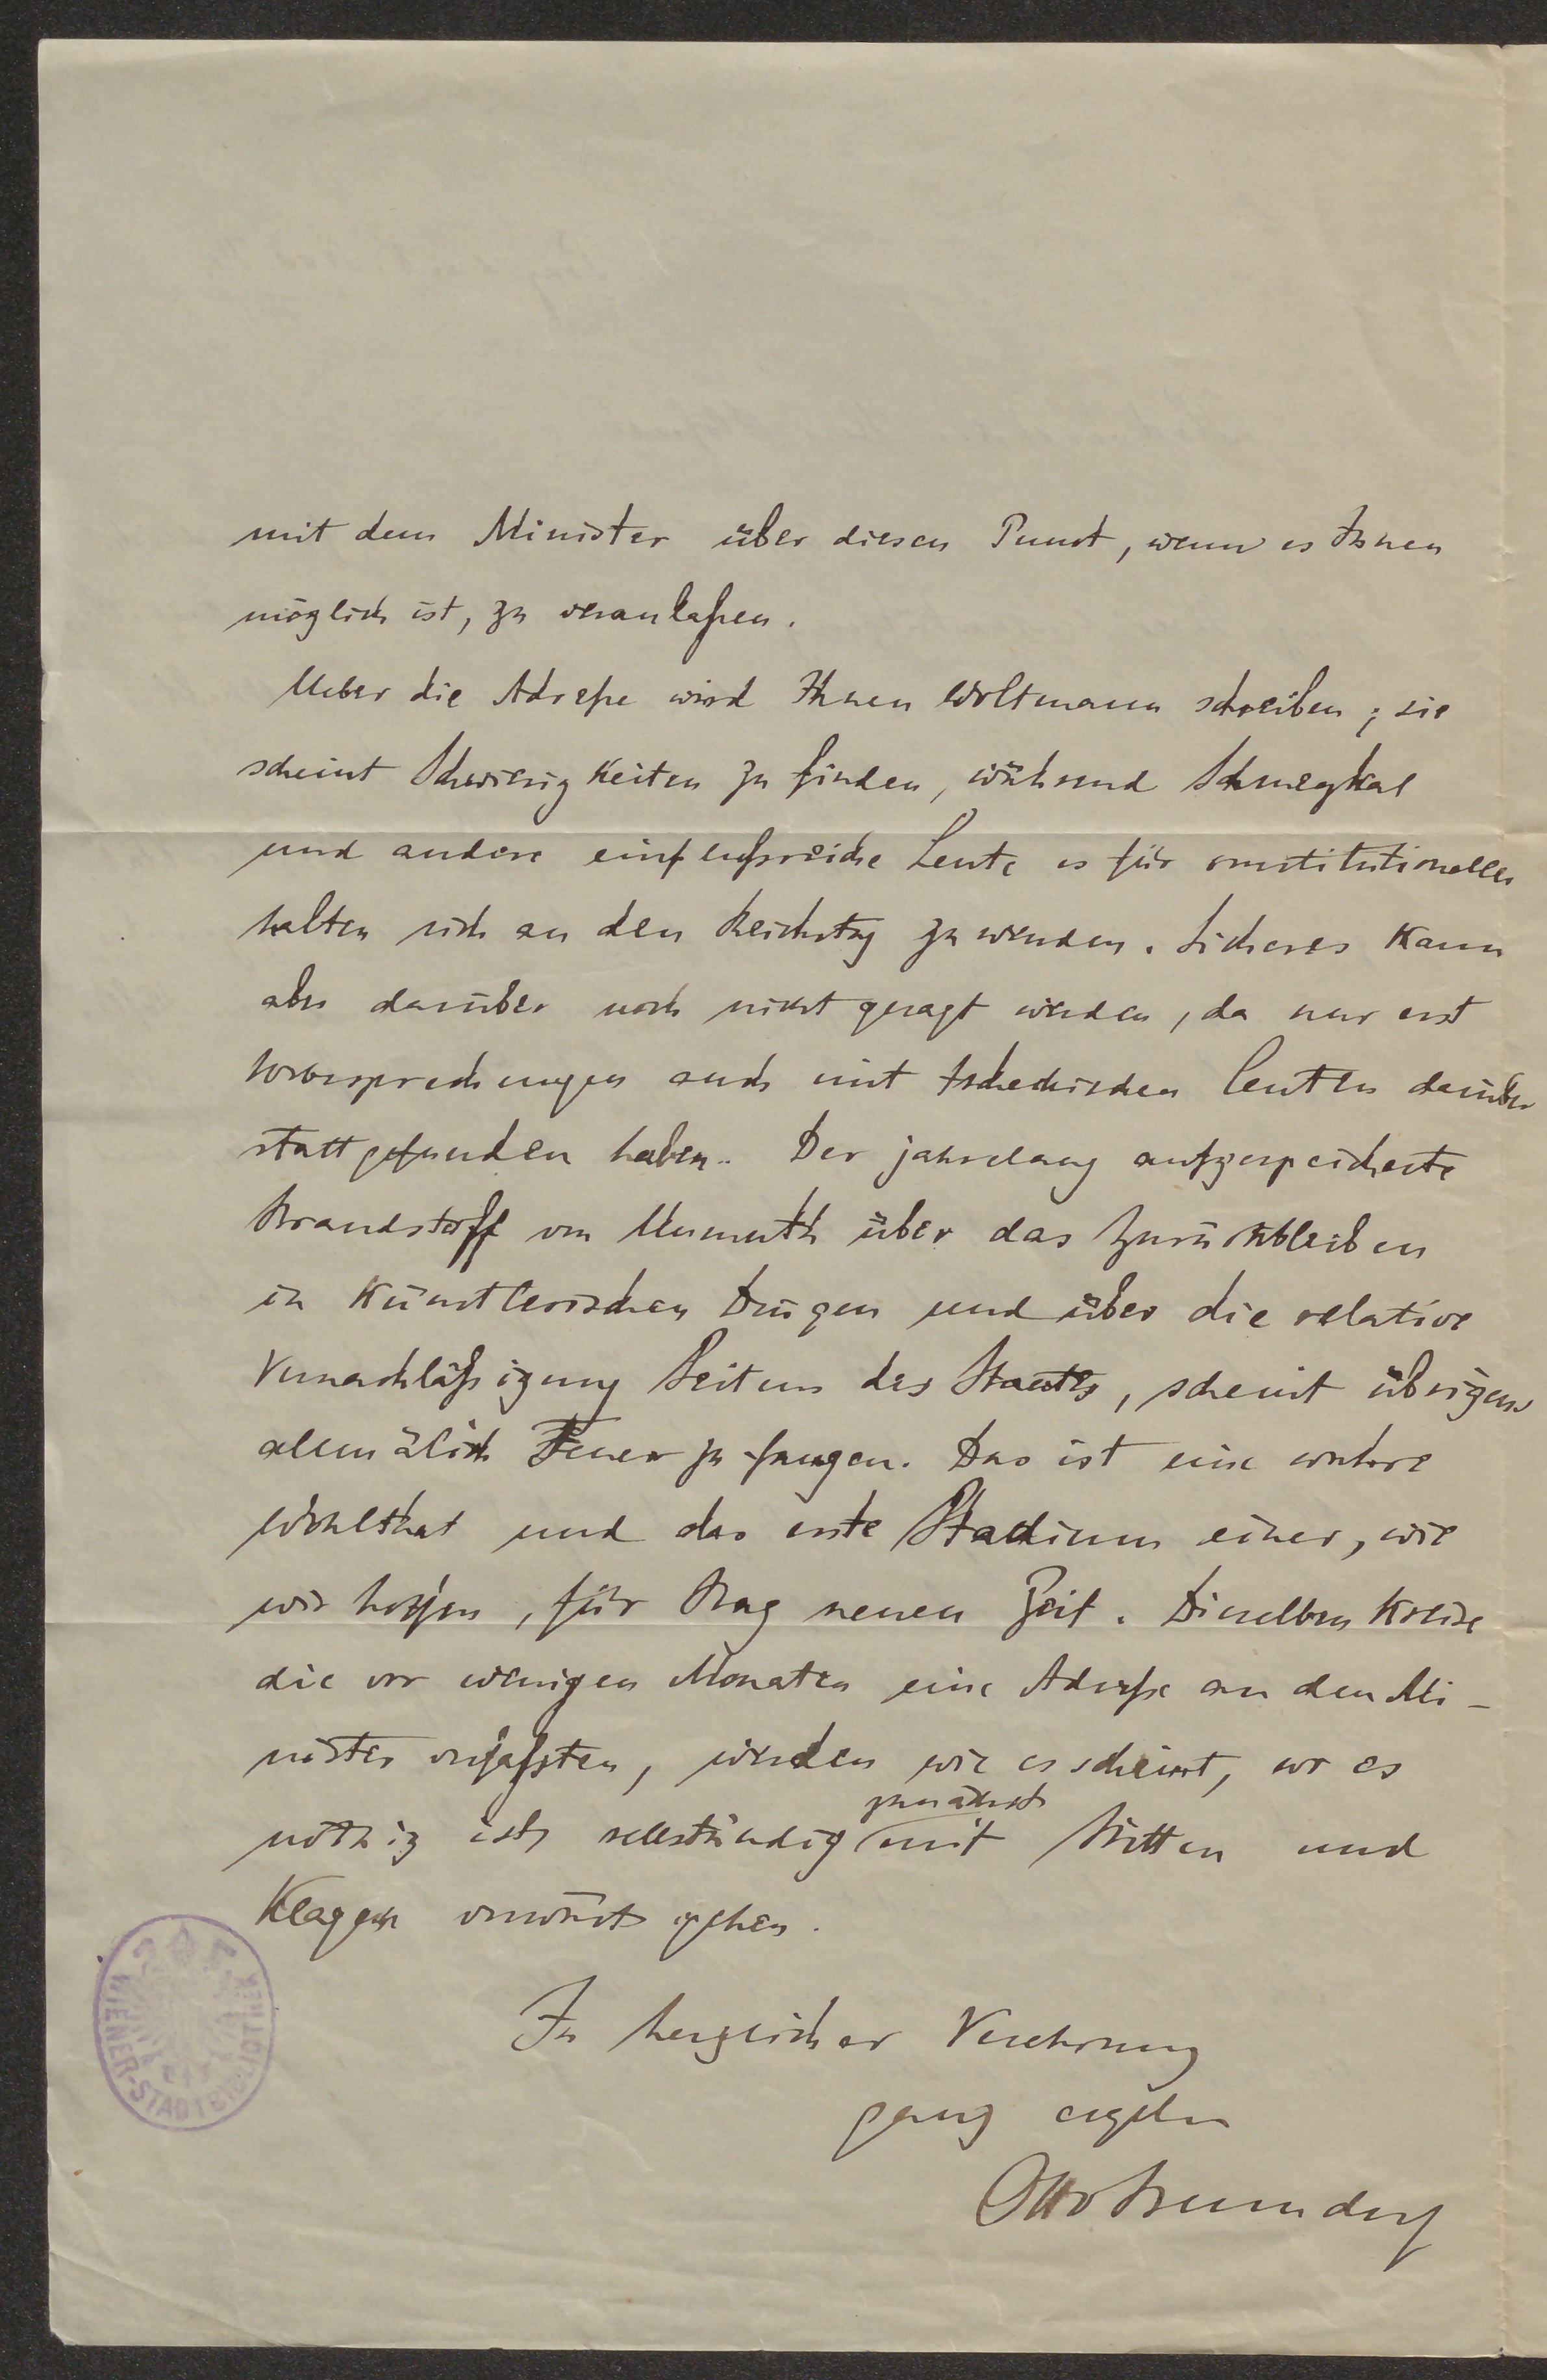 mit dem Minister über diesen Punct, wenn es Ihnen
möglich ist, zu veranlaßen.
Ueber die Adreße wird Ihnen Woltmann schreiben; sie
scheint Schwierigkeiten zu finden, während Schmeykal
und andere einflußreiche Leute es für constitutioneller
halten sich an den Reichstag zu wenden. Sicheres kann
aber darüber noch nicht gesagt werden, da nur erst
Vorbesprechungen auch mit tschechischen Leuten darüber
stattgefunden haben. Der jahrelang aufgespeicherte
Brandstoff von Unmuth über das Zurückbleiben
in künstlerischen Dingen und über die relative
Vernachläßigung Seitens des Staates, scheint übrigens
allmälich Feuer zu fangen. Das ist eine wahre
Wohlthat und das erste Stadium einer, wie
wir hoffen, für Prag neuen Zeit. Dieselben Kreise
die vor wenigen Monaten eine Adreße an den Mi-
nister verfaßten, werden wie es scheint, wo es
zunächst
nöthig ist, selbständig mit Bitten und
Klagen vorwärts gehen.
In herzlicher Verehrung
ganz ergeben
Otto Benndorf
WIENER-STADTBIBLIOTHEK